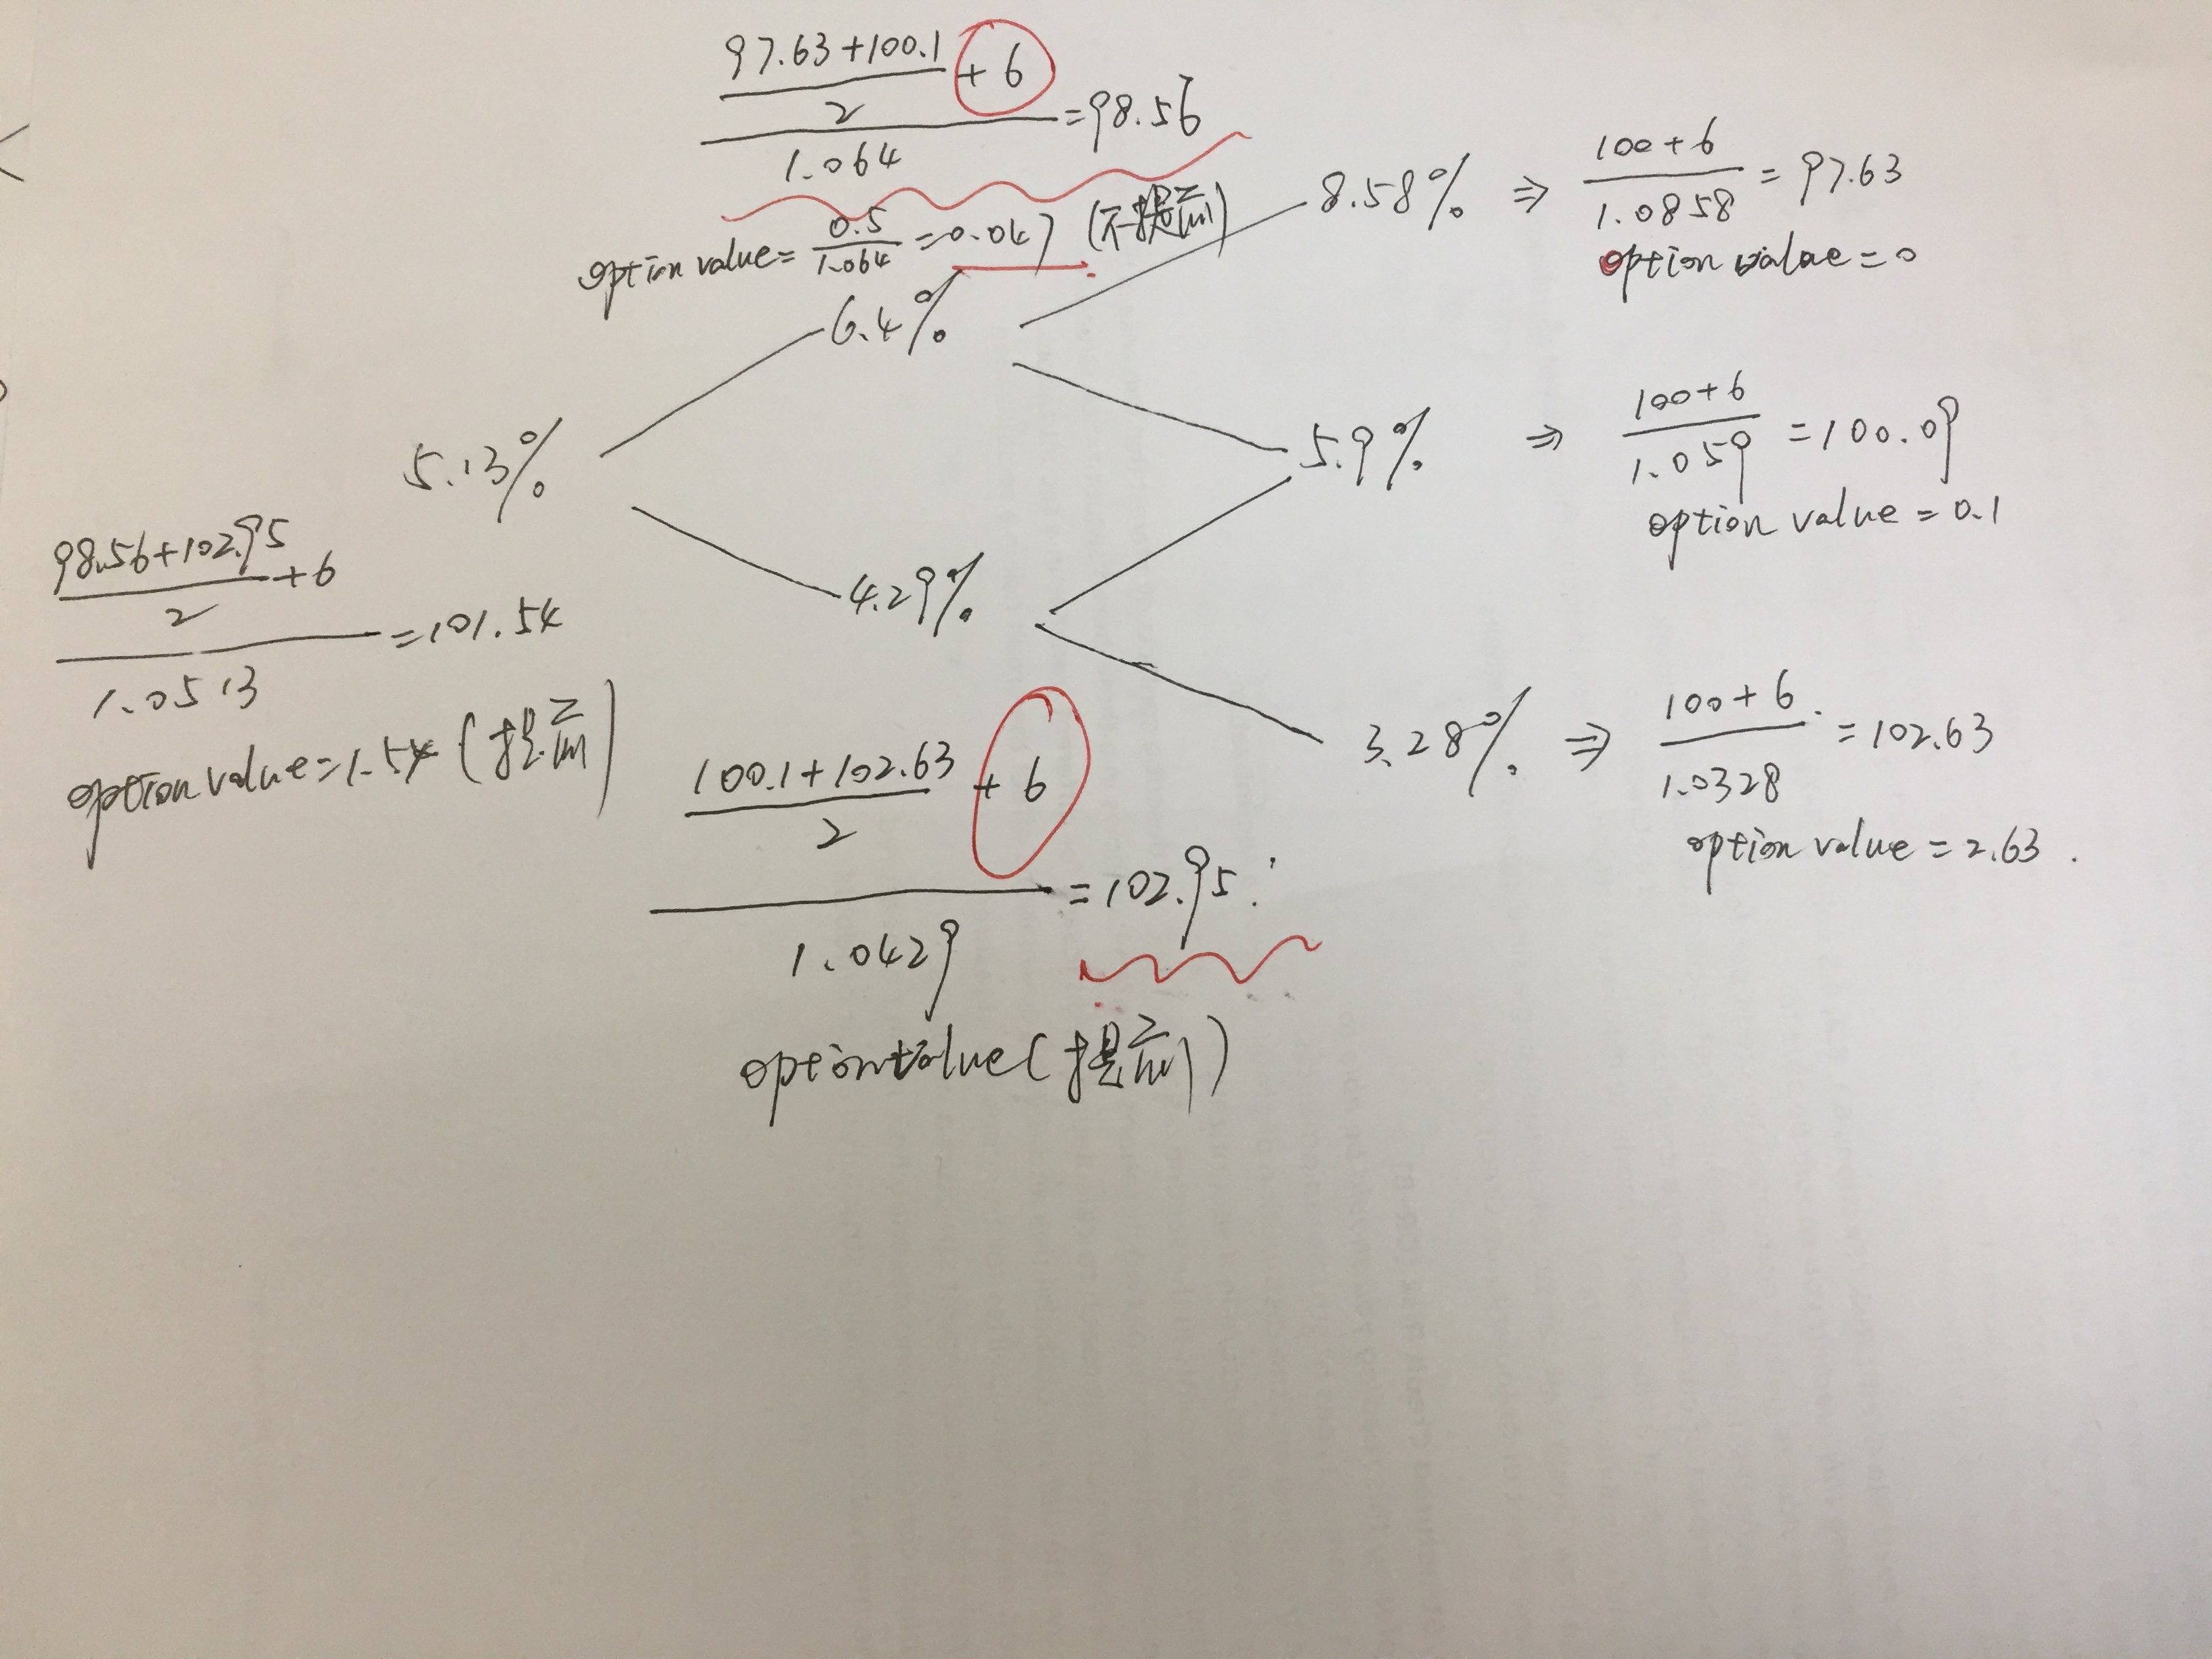 97.63+100.1
2
+ 6
1.064
=98.56
option value= 0.5
1.064
=0.047 (不提前)
6.4%
8.58% ⇒ 100+6
1.0858
= 97.63
option value=0
5.13%
5.9% ⇒ 100+6
1.059
=100.09
option value = 0.1
98.56+102.95
2
+6
1.0513
=101.54
option value=1.54 (提前)
4.29%
3.28% ⇒ 100+6
1.0328
=102.63
option value = 2.63.
100.1+102.63
2
+ 6
1.0429
=102.95
option value(提前)